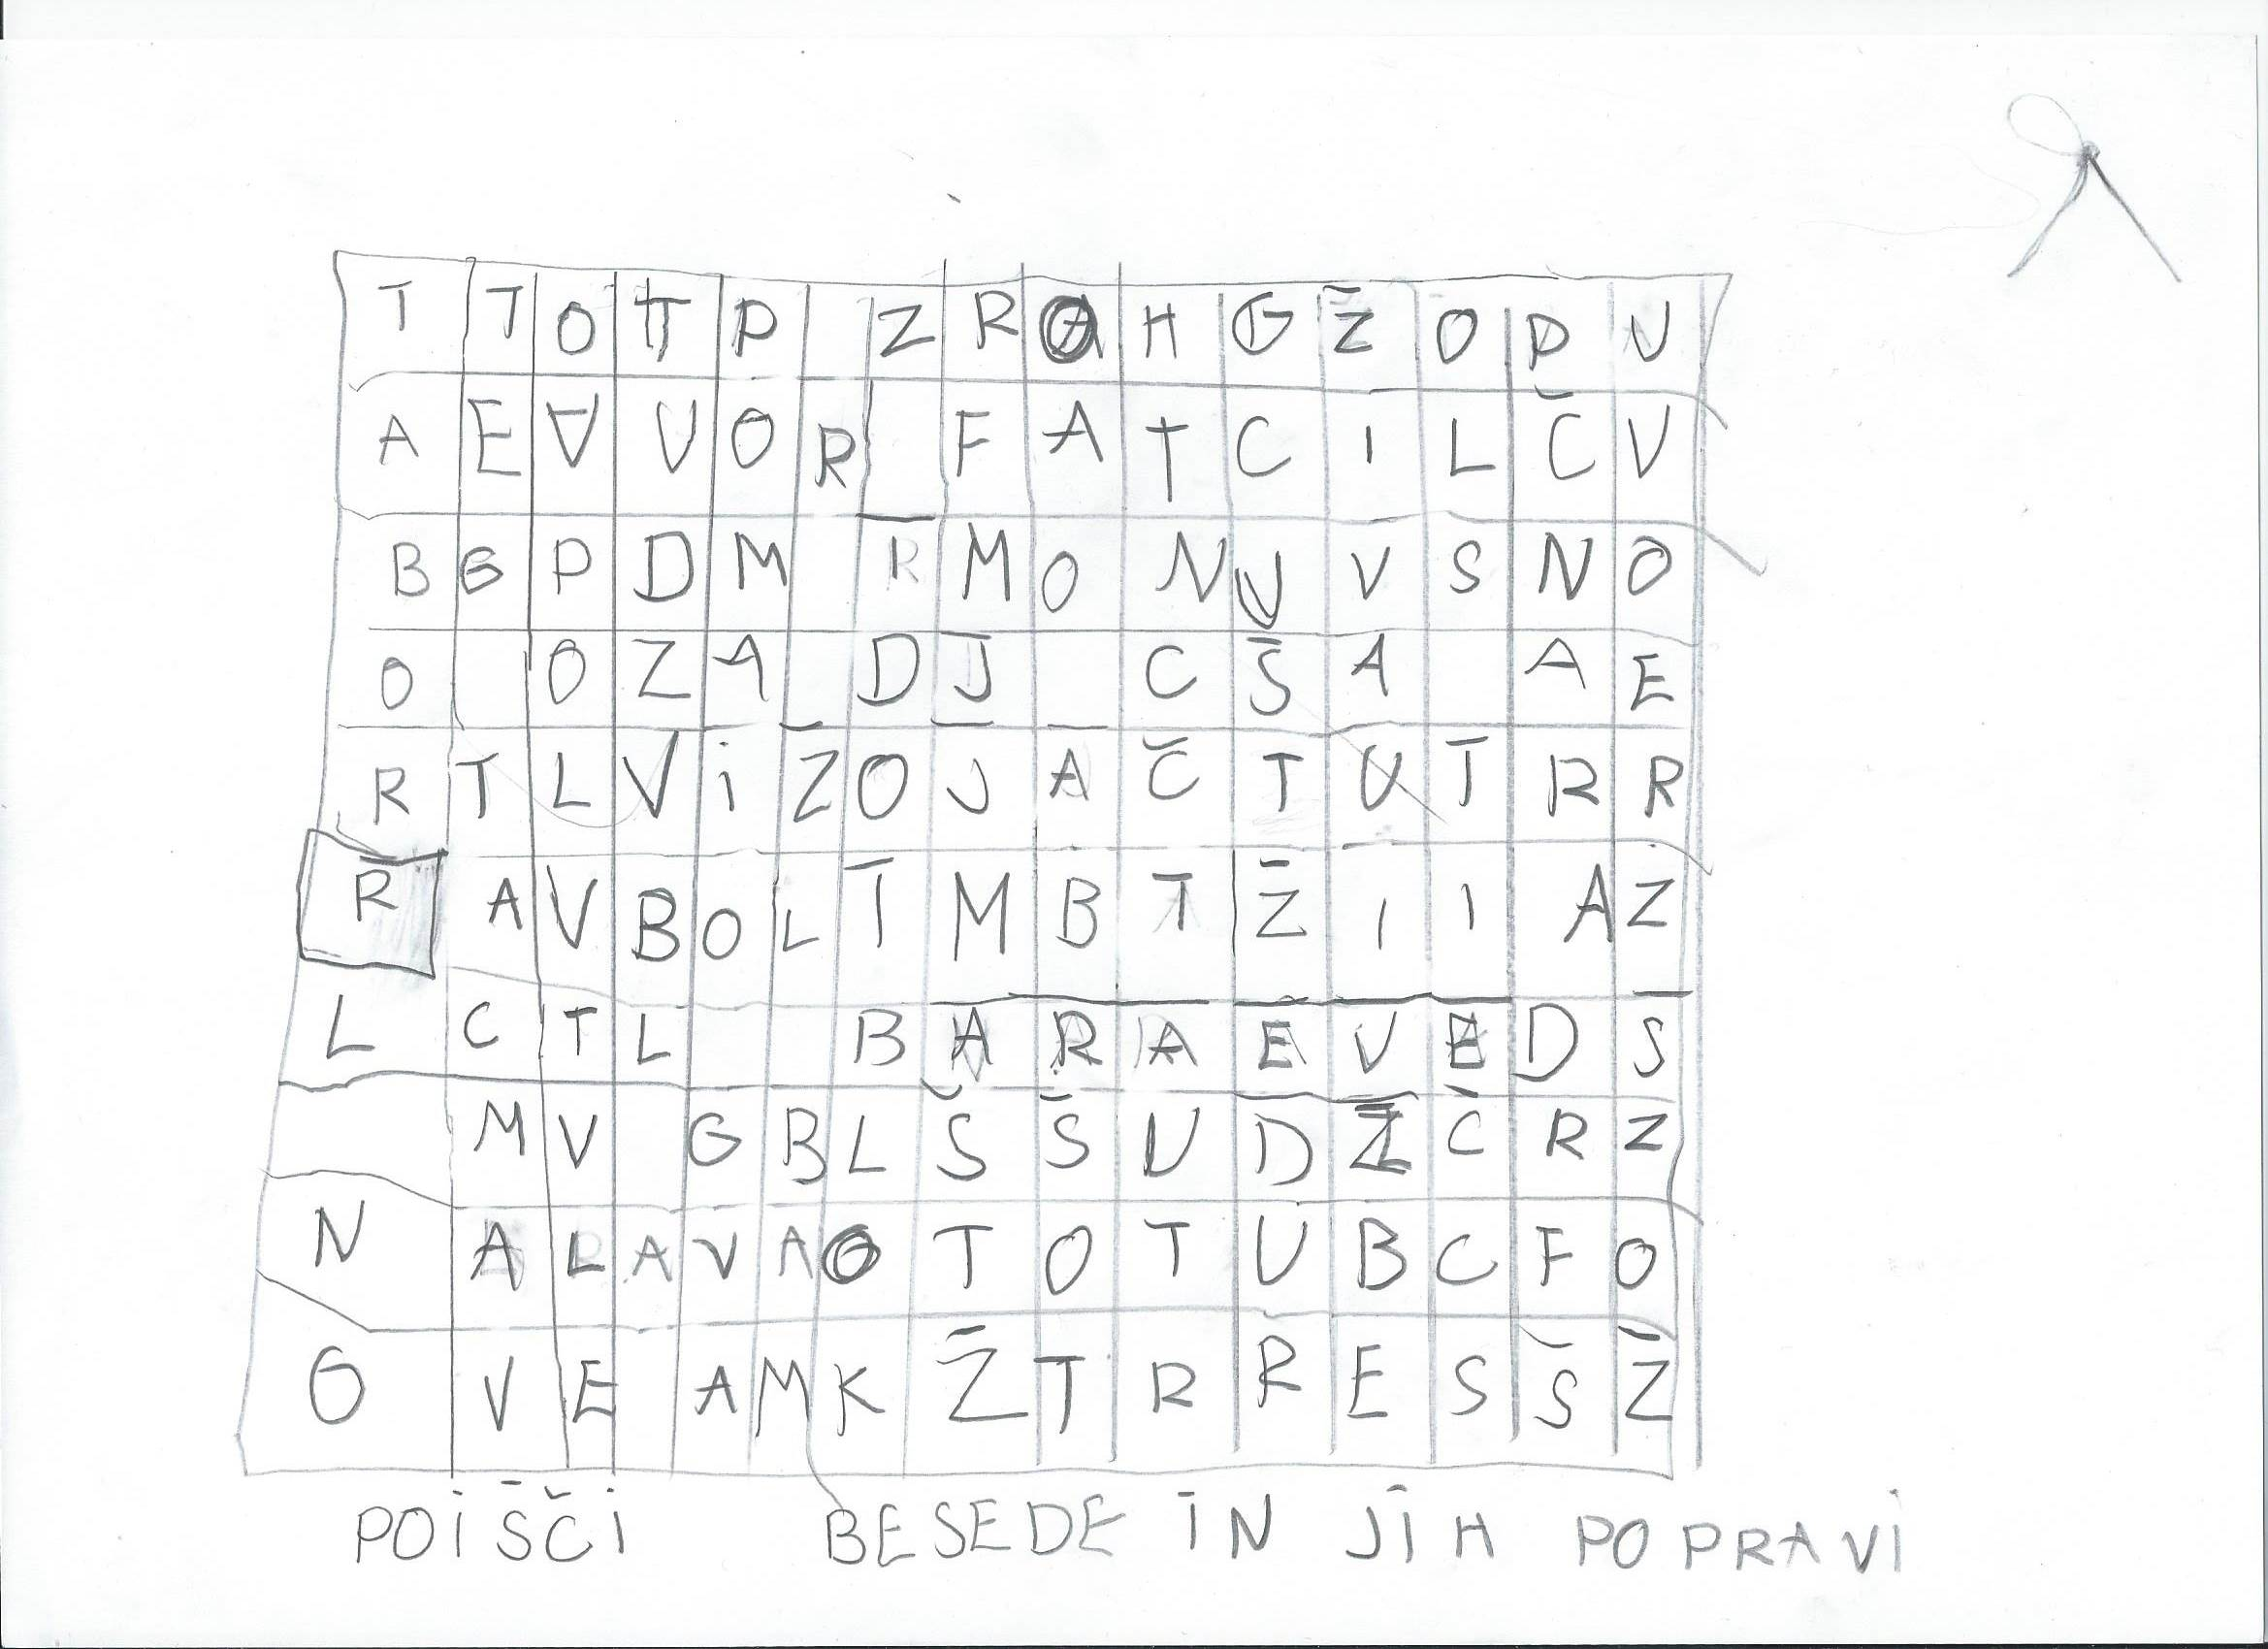 T T O T P Z R O H G Ž O P U
A E V U O R F A T C I L Č V
B G P D M R M O N U V S N O
O O Z A D J C Š A A E
R T L V I Z O J A Č T U T R R
R A V B O L T M B T Ž I I A Z
L C T L B A R A E V E D S
M V G B L Š Š U D Ž Č R Z
N A L A V A O T O T U B C F O
G V E A M K Ž T R R E S Š Ž
POIŠČI BESEDE IN JIH POPRAVI